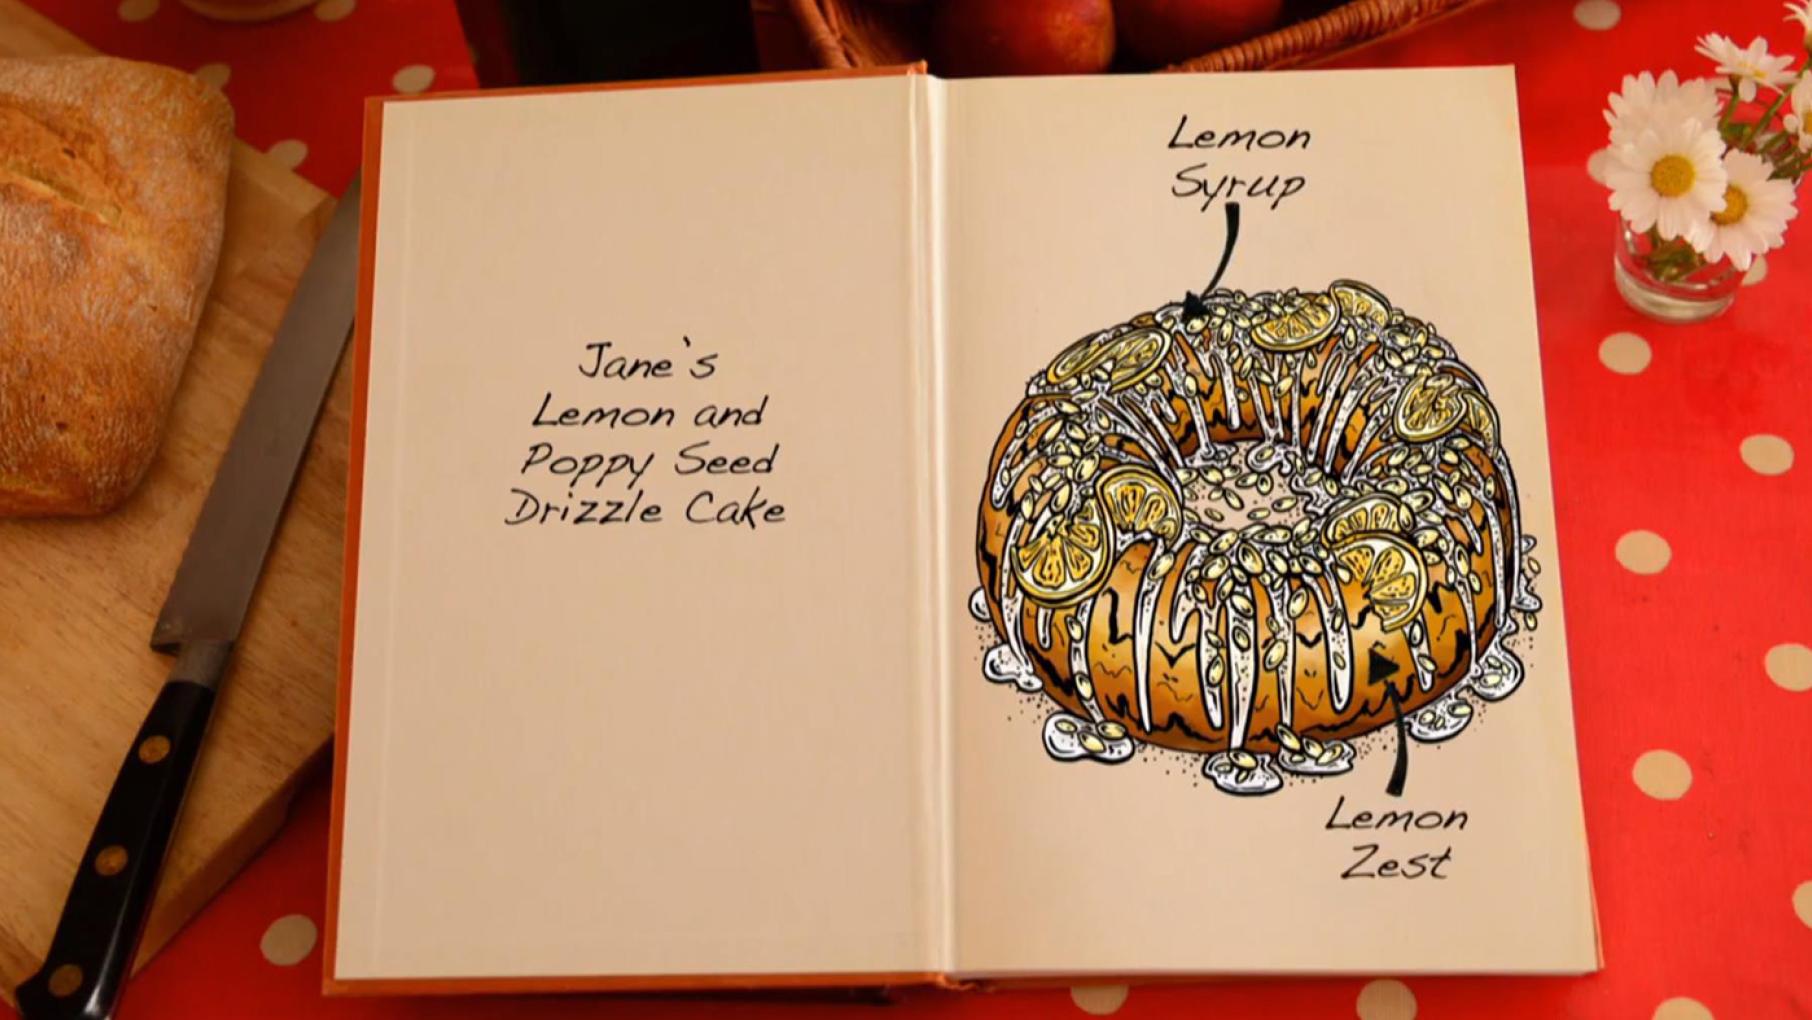 Jane's
Lemon and
Poppy Seed
Drizzle Cake
Lemon
Syrup
Lemon
Zest